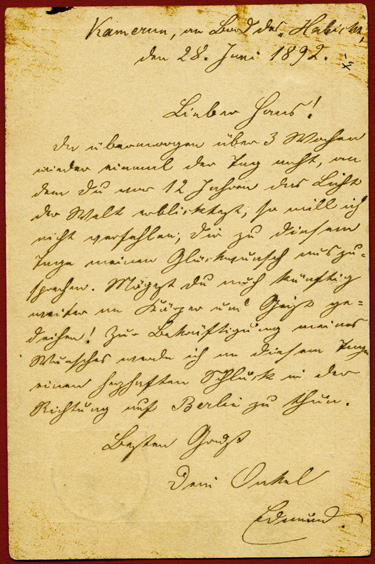 Kamerun, an Bord des "Habicht",
den 28. Juni 1892.
Lieber Hans!
Da übermorgen über 3 Wochen
wieder einmal der Tag naht, an
dem Du vor 12 Jahren das Licht
der Welt erblicktest, so will ich
nicht verfehlen, Dir zu diesem
Tage meinen Glückwunsch auszu-
sprechen. Mögest Du auch künftig
weiter an Körper und Geist ge-
deihen! Zur Bekräftigung meines
Wunsches werde ich an diesem Tage
einen herzhaften Schluck in der
Richtung auf Berlin zu thun.
Besten Gruß
Dein Onkel
Edmund.